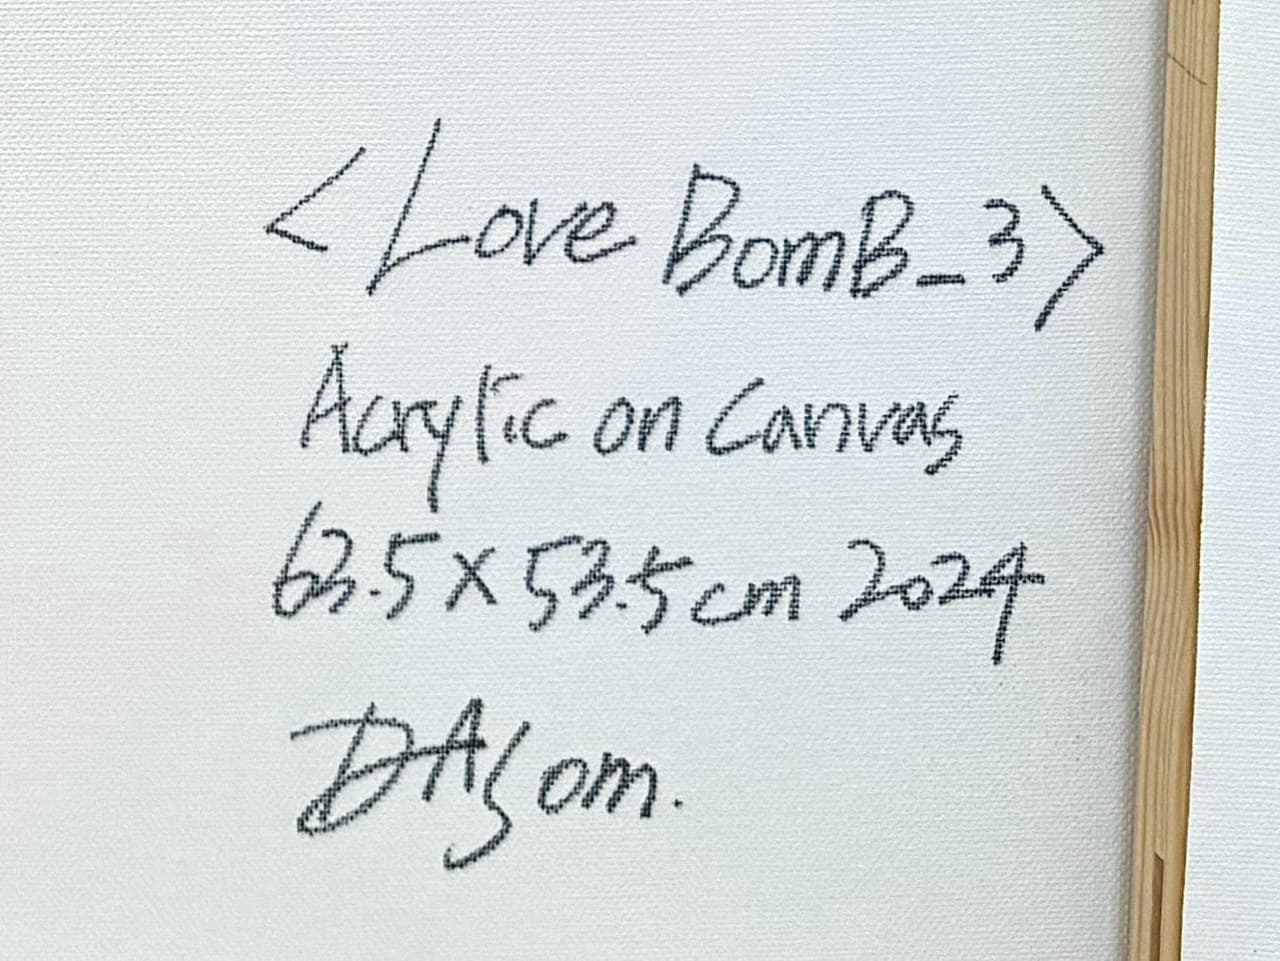 <Love BomB_3>
Acrylic on Canvas
63.5 x 53.5cm 2024
DASom.